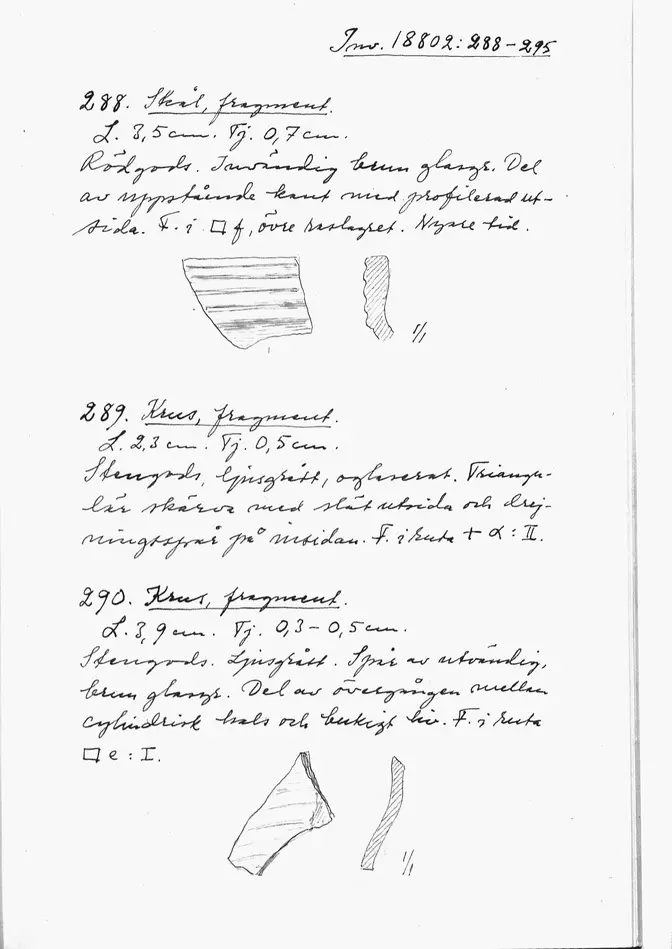 Inv. 18802:288-295
288. Skål, fragment.
L. 3,5 cm. Tj. 0,7 cm.
Rödgods. Invändig brun glasyr. Del
av uppstående kant med profilerad ut-
sida. F. i □ f, övre raslagret. Nyare tid.
1/1
289. Krus, fragment.
L. 2,3 cm. Tj. 0,5 cm.
Stengods, ljusgrått, oglaserat. Triangu-
lär skärva med slät utsida och drej-
ningsspår på insidan. F. i ruta + α : II.
290. Krus, fragment.
L. 3,9 cm. Tj. 0,3-0,5 cm.
Stengods. Ljusgrått. Spår av utvändig,
brun glasyr. Del av övergången mellan
cylindrisk hals och bukigt liv. F. i ruta
□ e : I.
1/1